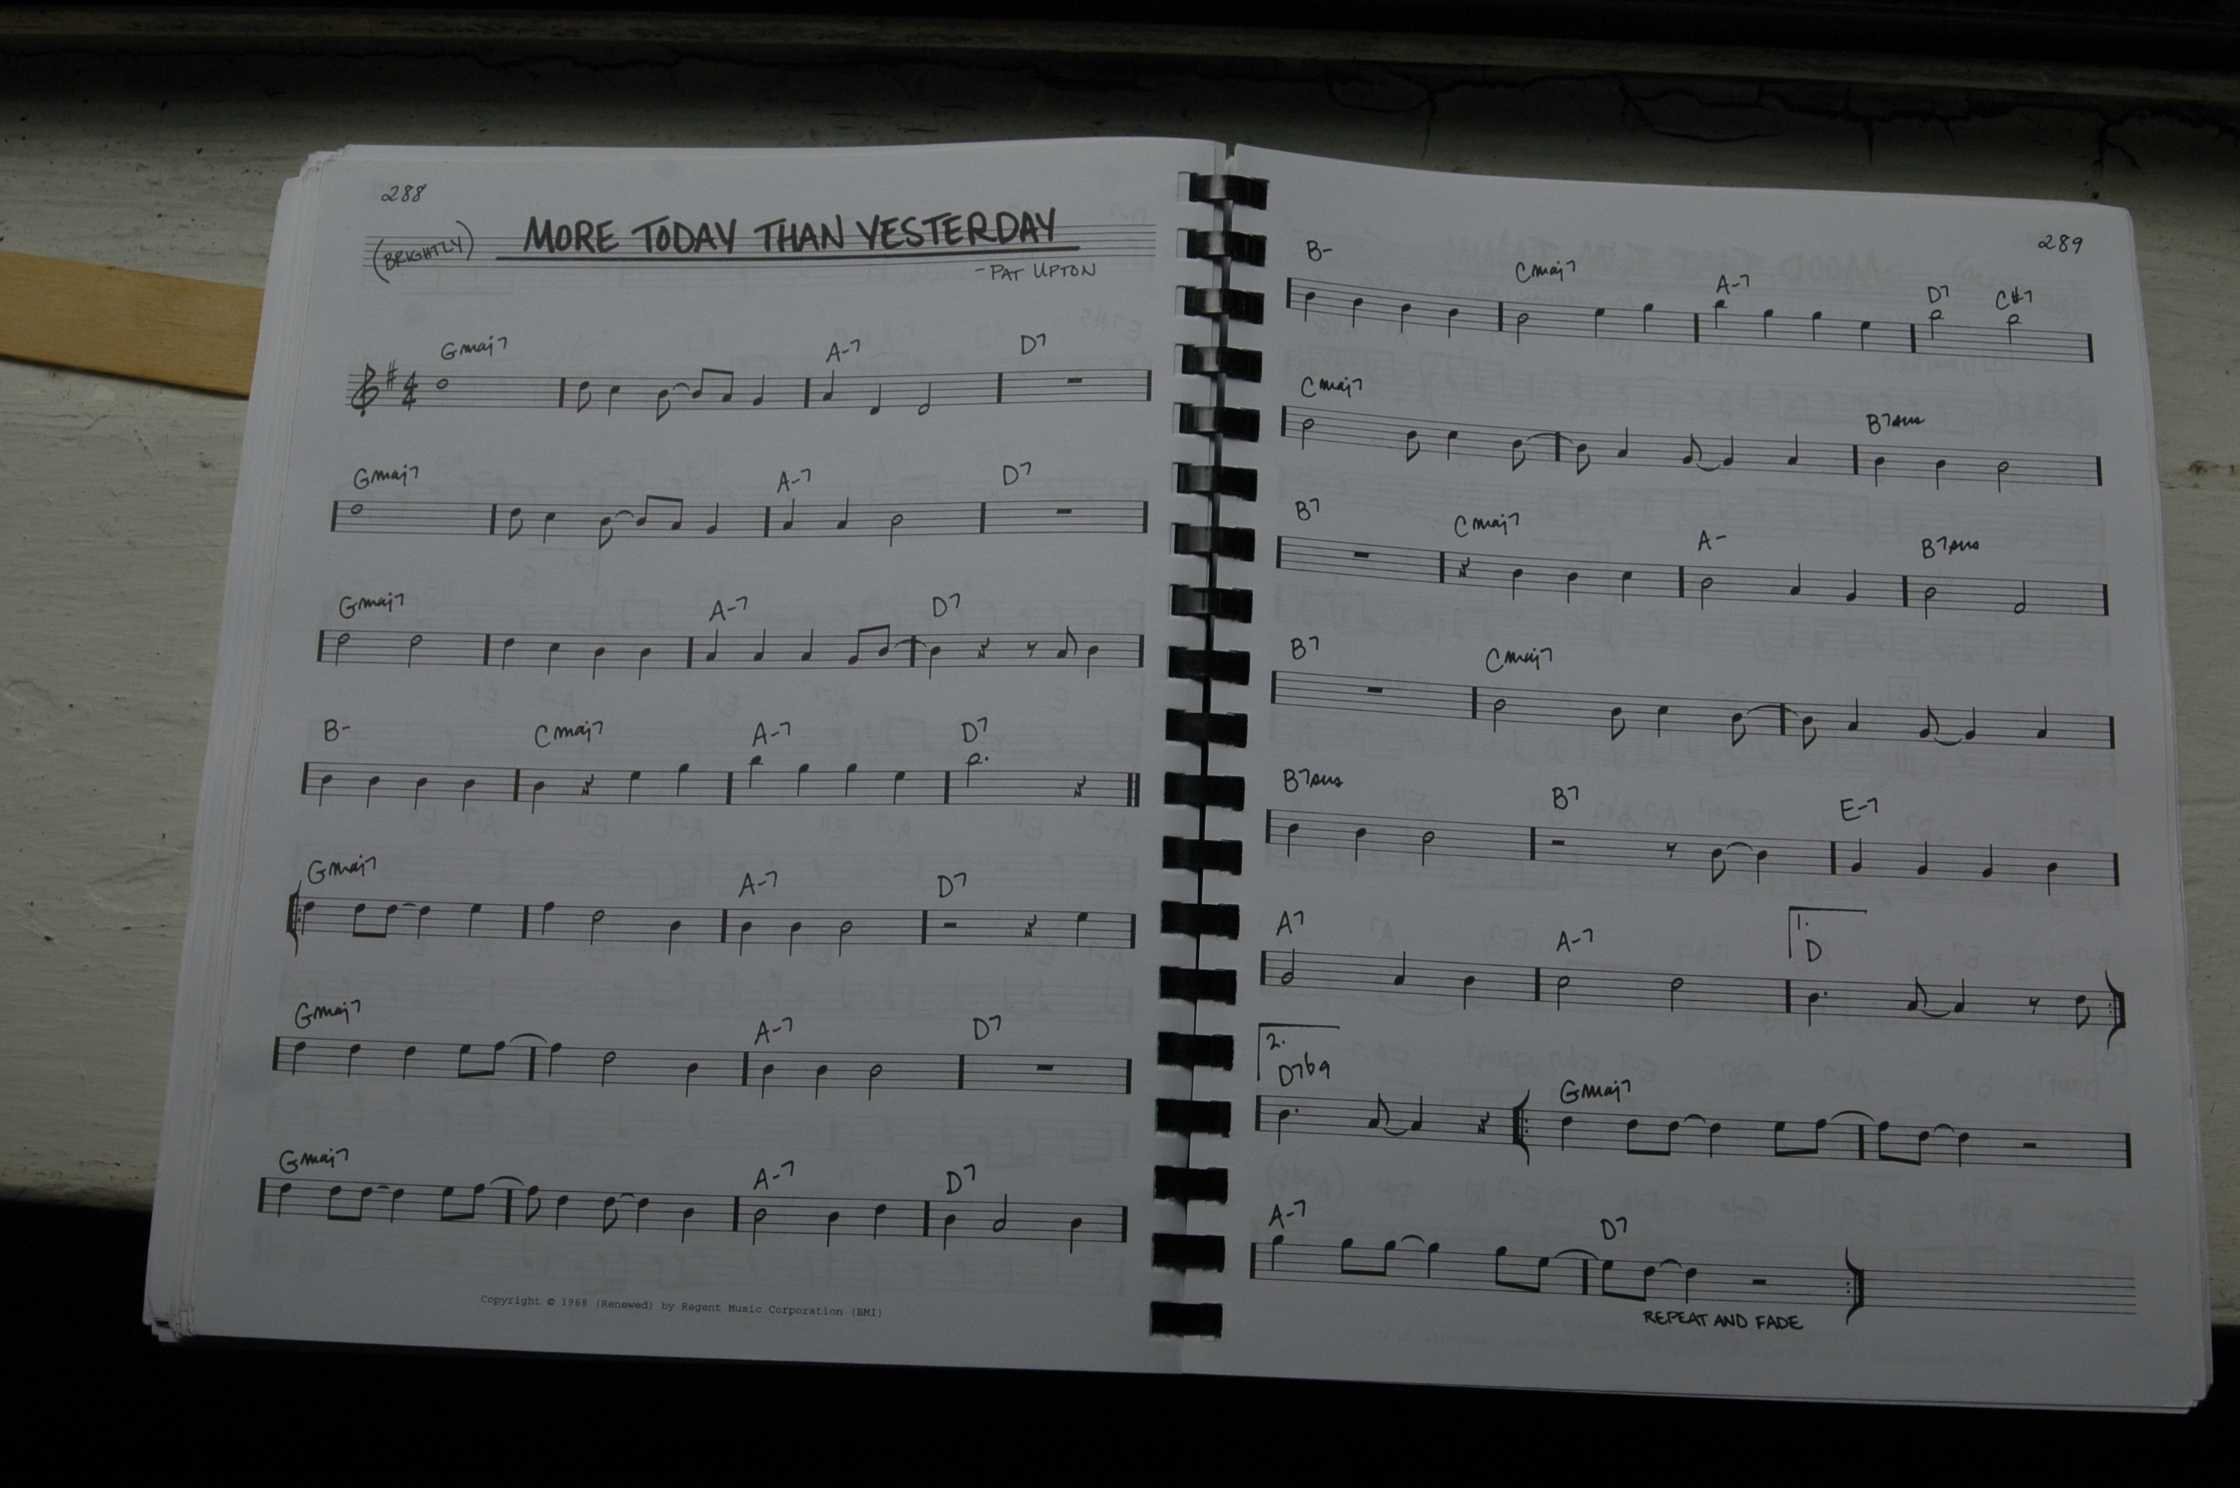 288
(BRIGHTLY) MORE TODAY THAN YESTERDAY
- PAT UPTON
Gmaj7 A-7 D7
4
4
Gmaj7 A-7 D7
Gmaj7 A-7 D7
B- Cmaj7 A-7 D7
Gmaj7 A-7 D7
Gmaj7 A-7 D7
Gmaj7 A-7 D7
Copyright © 1968 (Renewed) by Regent Music Corporation (BMI)
289
B- Cmaj7 A-7 D7 C#7
Cmaj7 B7sus
B7 Cmaj7 A- B7sus
B7 Cmaj7
B7sus B7 E-7
A7 A-7 1. D
2. D7b9 Gmaj7
A-7 D7
REPEAT AND FADE